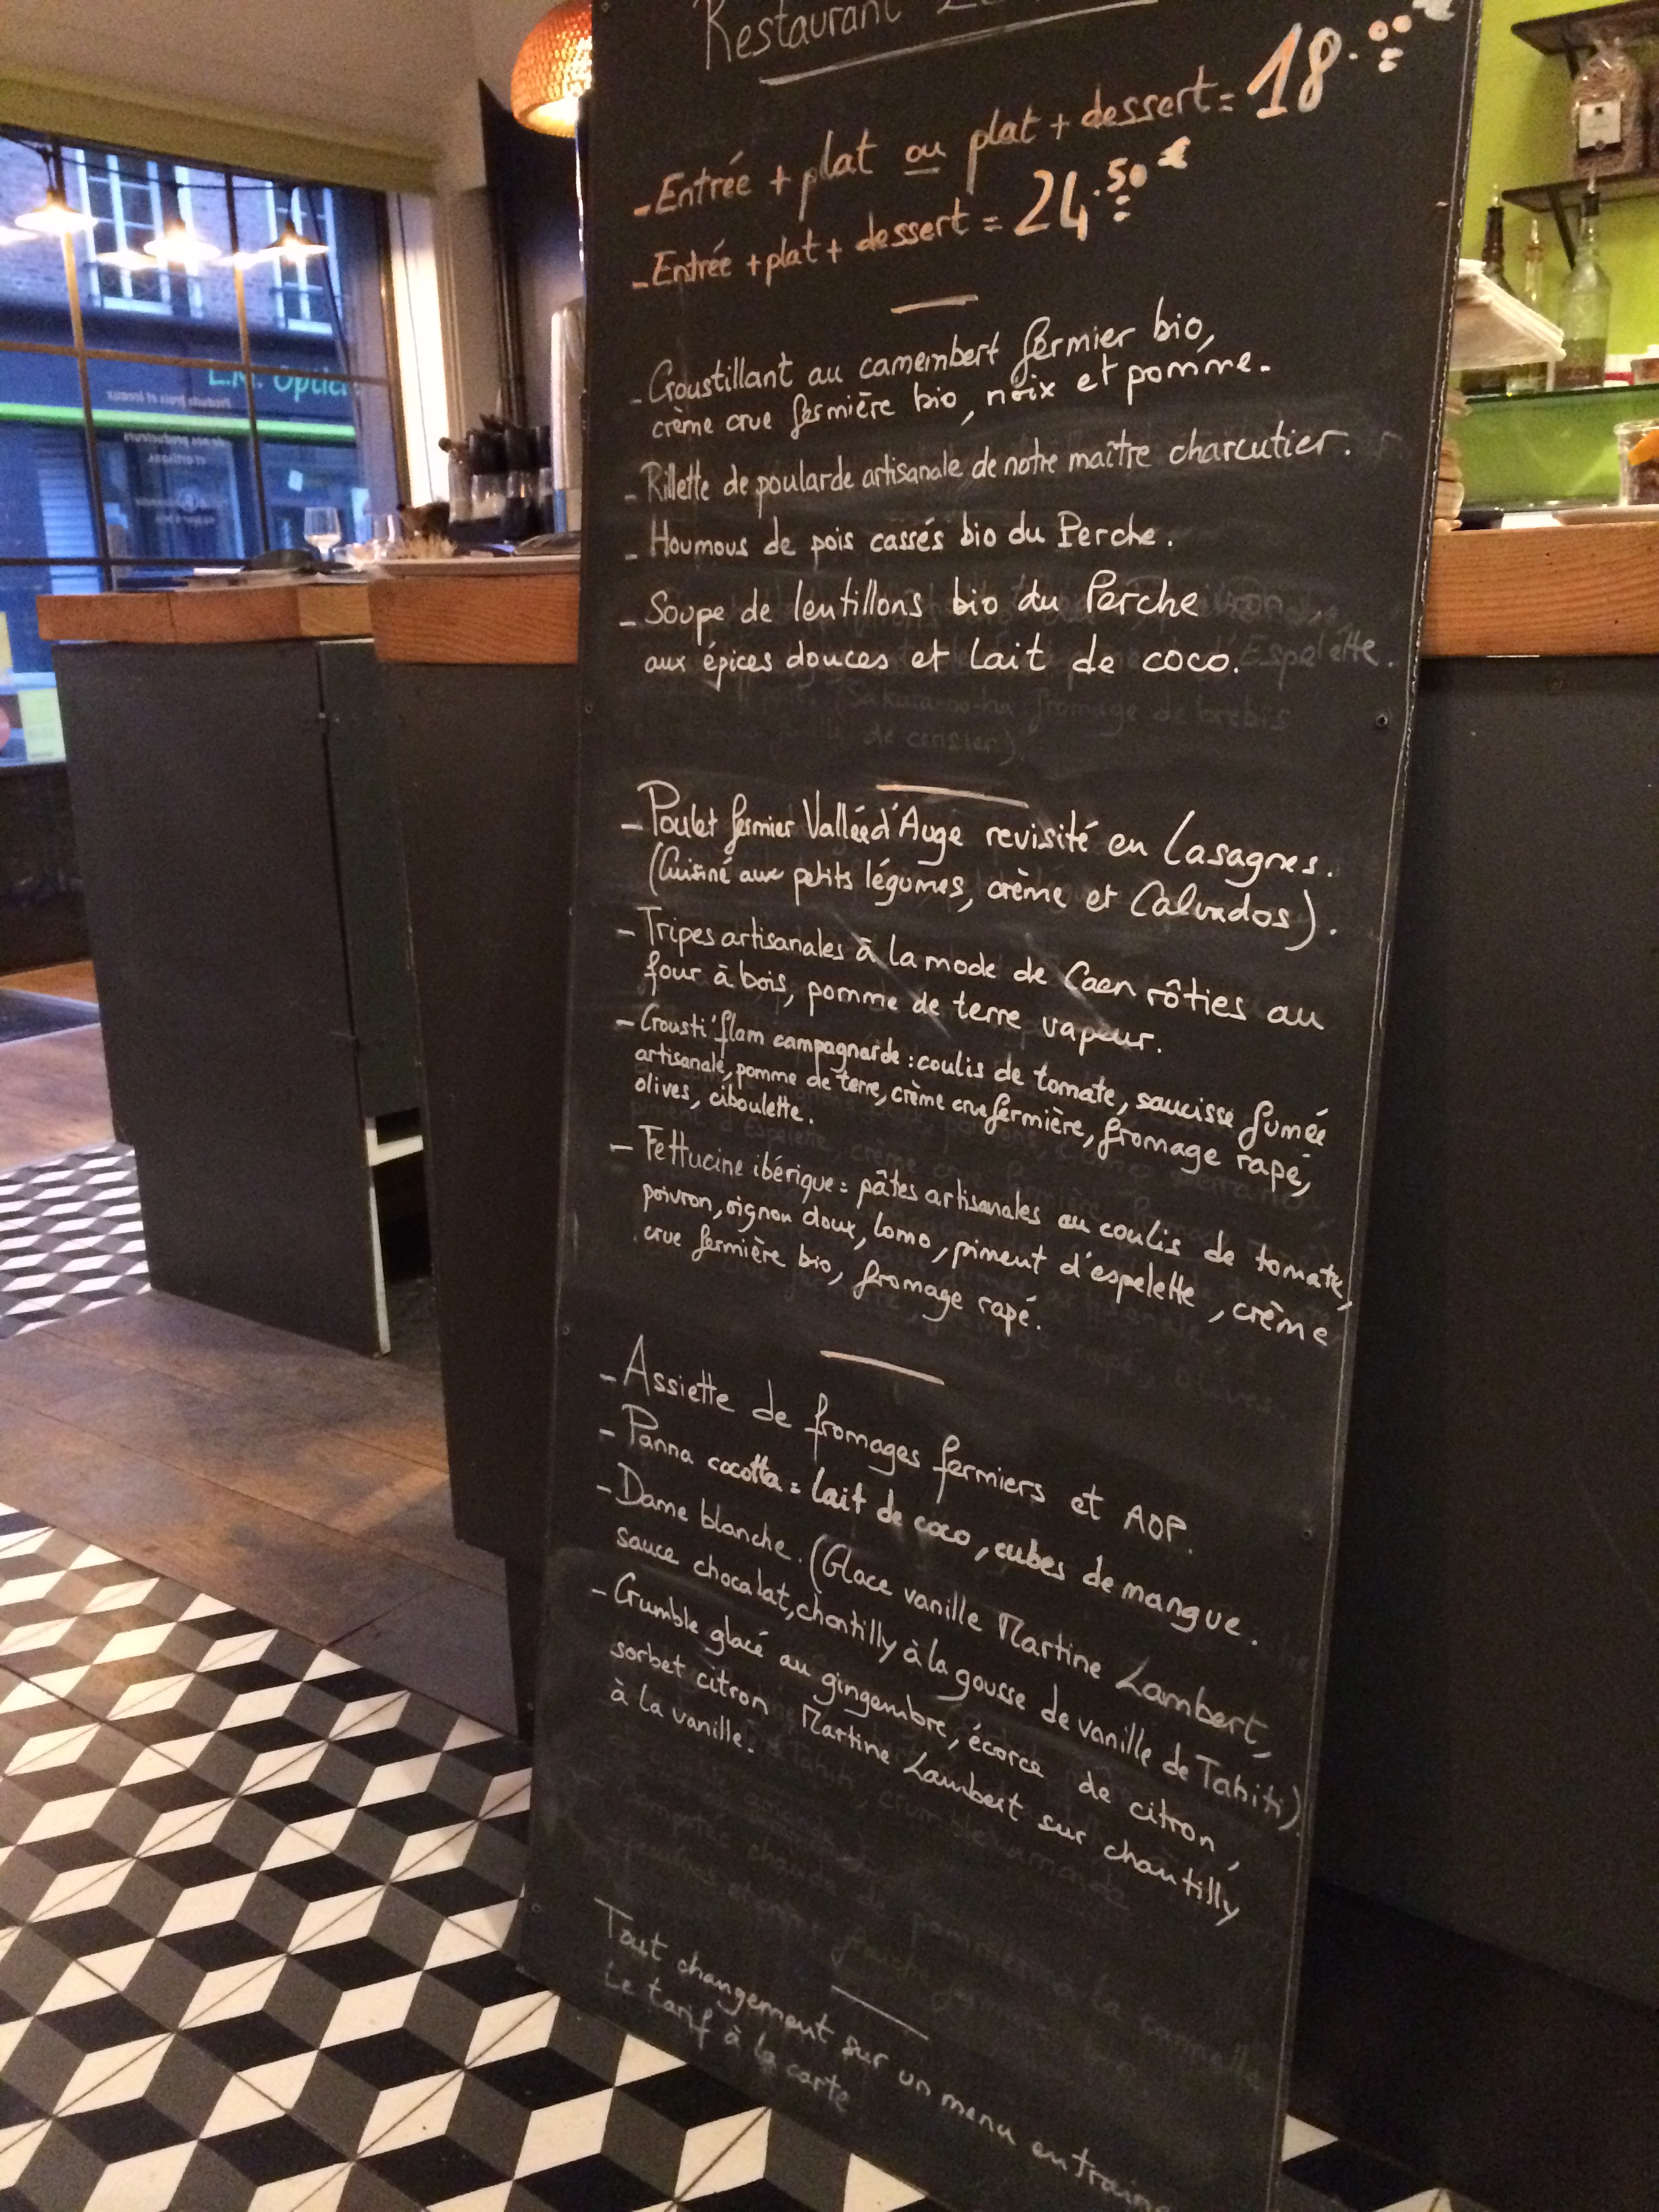 Restaurant
- Entrée + plat ou plat + dessert = 18.00 €
- Entrée + plat + dessert = 24.50 €
- Croustillant au camembert fermier bio,
crème crue fermière bio, noix et pomme.
- Rillette de poularde artisanale de notre maître charcutier.
- Houmous de pois cassés bio du Perche.
- Soupe de lentillons bio du Perche
aux épices douces et lait de coco.
Espelette.
Sakura-no-ha : fromage de brebis
de cerisier)
- Poulet fermier Vallée d'Auge revisité en Lasagnes.
(Cuisiné aux petits légumes, crème et Calvados).
- Tripes artisanales à la mode de Caen rôties au
four à bois, pomme de terre vapeur.
- Crousti'flam campagnarde : coulis de tomate, saucisse fumée
artisanale, pomme de terre, crème crue fermière, fromage rapé,
olives, ciboulette.
- Fettucine ibérique = pâtes artisanales au coulis de tomate,
poivron, oignon doux, lomo, piment d'espelette, crème
crue fermière bio, fromage rapé.
- Assiette de fromages fermiers et AOP.
- Panna cocotta = lait de coco, cubes de mangue.
- Dame blanche. (Glace vanille Martine Lambert,
sauce chocalat, chantilly à la gousse de vanille de Tahiti)
- Crumble glacé au gingembre, écorce de citron,
sorbet citron Martine Lambert sur chantilly
à la vanille.
Tout changement sur un menu entraine
le tarif à la carte
L.M. Optic
Produits frais et locaux
de nos producteurs
et artisans